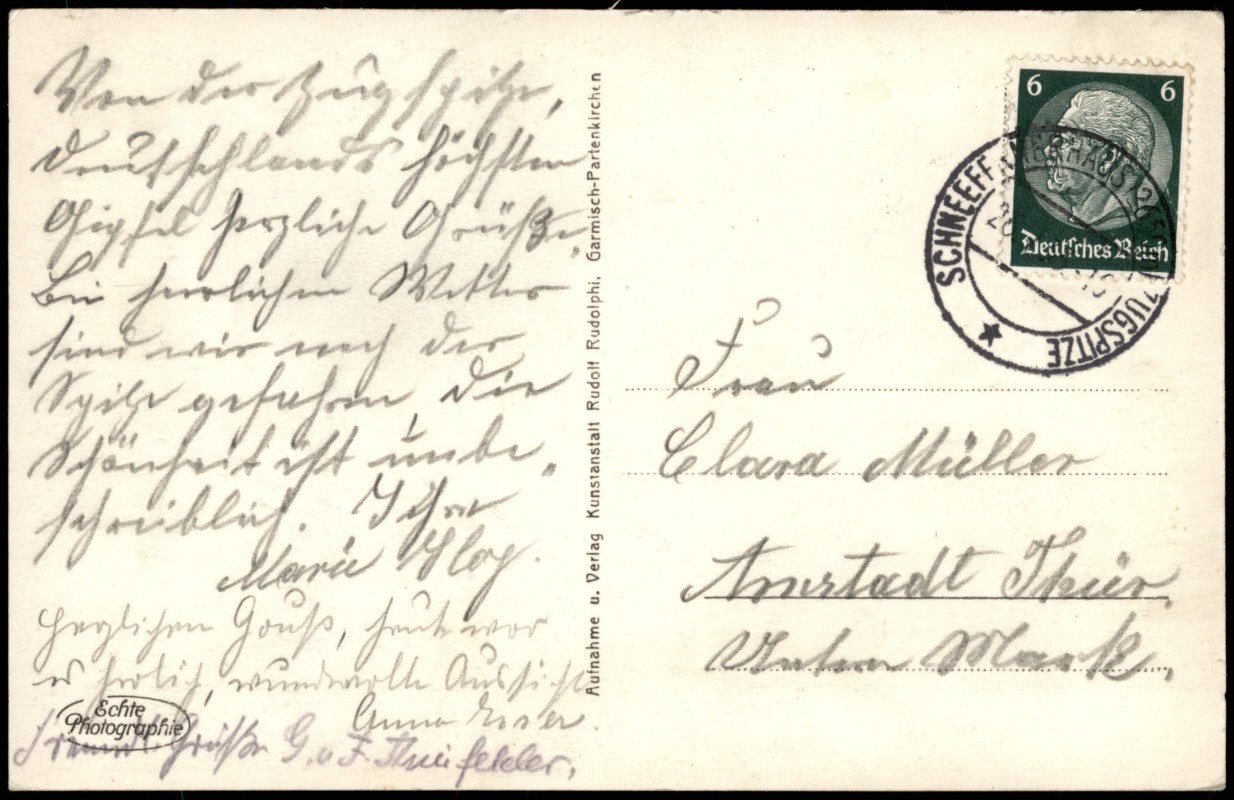 Von der Zugspitze,
Deutschlands höchsten
Gipfel herzliche Grüße,
Bei herrlichem Wetter
sind wir nach der
Spitze gefahren, die
Schönheit ist unbe„
schreiblich. Ihre
Marie
Herzlichen Gruß, heute war
es herlich, wundervolle Aussicht
Anna
Grüße G. u. F.
Echte
Photographie
Aufnahme u. Verlag Kunstanstalt Rudolf Rudolphi, Garmisch-Partenkirchen
6 6
Deutsches Reich
SCHNEEFERNERHAUS ZUGSPITZE
Frau
Clara Müller
Arnstadt Thür.
Untern Markt